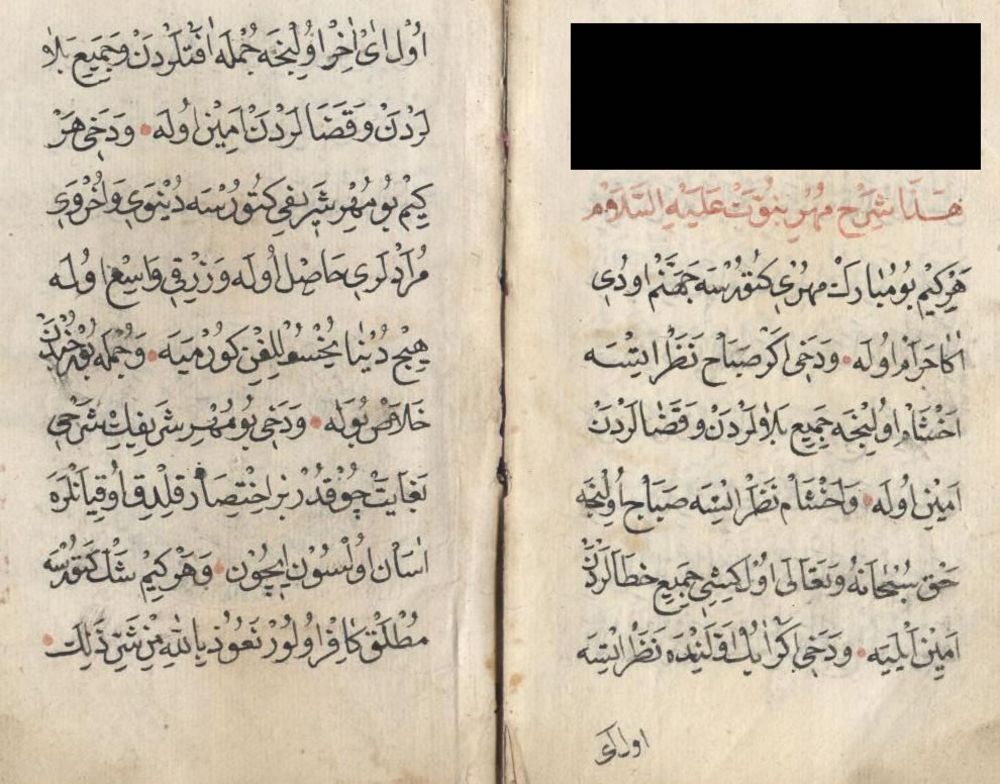 هذا شرح مهر نبوت عليه السلام
هر كيم بو مبارك مهرى كتورسه جهنم اودى
اكا حرام اوله ودخى اكر صباح نظر ايتسه
اخشام اولنجه جميع بلالردن وقضالردن
امين اوله واخشام نظر ايتسه صباح اولنجه
حق سبحانه وتعالى اول كيشى جميع خطالردن
امين ايليه ودخى اكر اى اولنده نظر ايتسه
اول اى
اول اى اخر اولنجه جمله افتلردن وجميع بلا
لردن وقضالردن امين اوله ودخى هر
كيم بو مهر شريفى كتورسه دنيوى واخروى
مرادلرى حاصل اوله ورزقى واسع اوله
هيچ دنيا يخسوللغن كورميه وجمله بورجدن
خلاص بوله ودخى بو مهر شريفك شرحى
بغايت چوقدر بز اختصار قلدق اوقيانلره
اسان اولسون ايچون وهر كيم شك كتورسه
مطلق كافر اولور نعوذ بالله من شر ذلك